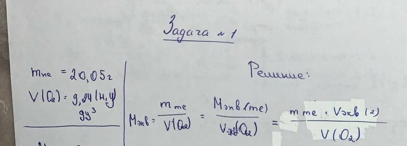 Задача №1
mме = 20,05г
V(O₂) = 9,84 (н.у)
Решение:
Mэкв = mме / V(O₂) = Mэкв(ме) / Vэкв(O₂) = mме · Vэкв(г) / V(O₂)